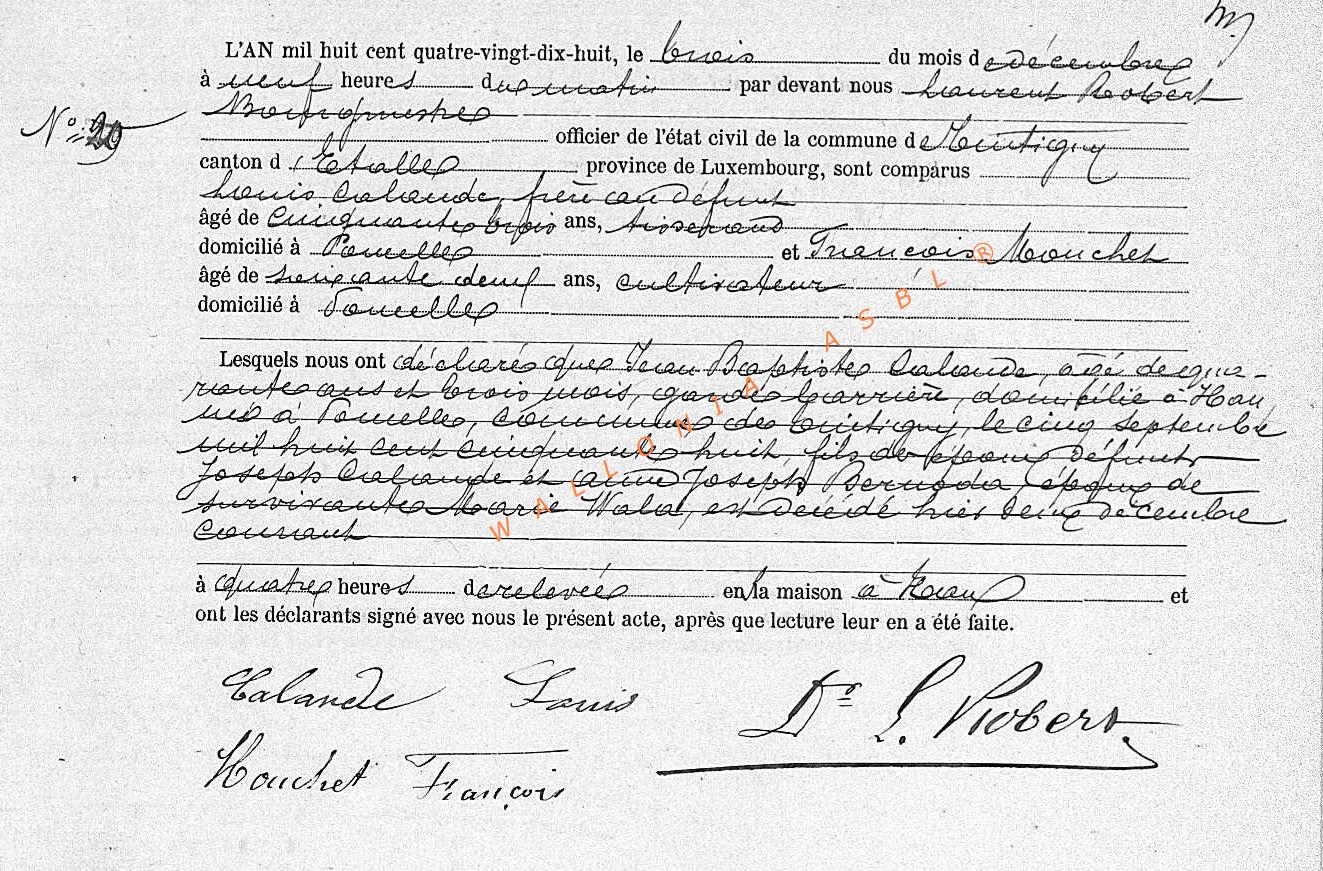 L'AN mil huit cent quatre-vingt-dix-huit, le trois du mois de décembre
à neuf heures du matin par devant nous Laurent Robert
Bourgmestre
N° 20
officier de l'état civil de la commune de Tintigny
canton d'Etalle province de Luxembourg, sont comparus
Louis Calande, frère au défunt
âgé de cinquante trois ans, tisserand
domicilié à et François Mouchet
âgé de soixante deux ans, cultivateur
domicilié à
Lesquels nous ont déclaré que Jean Baptiste Calande, âgé de qua-
rante ans et trois mois, garde barrière, domicilié à Han
né à commune de Tintigny, le cinq septembre
mil huit cent cinquante huit, fils de époux défunts
Joseph Calande et Anne Joseph époux de
survivante Marie est décédé hier deux décembre
courant
à quatre heures de relevée en la maison à Han et
ont les déclarants signé avec nous le présent acte, après que lecture leur en a été faite.
Calande Louis
Dr L. Robert
Mouchet François
WALLONIA ASBL ®